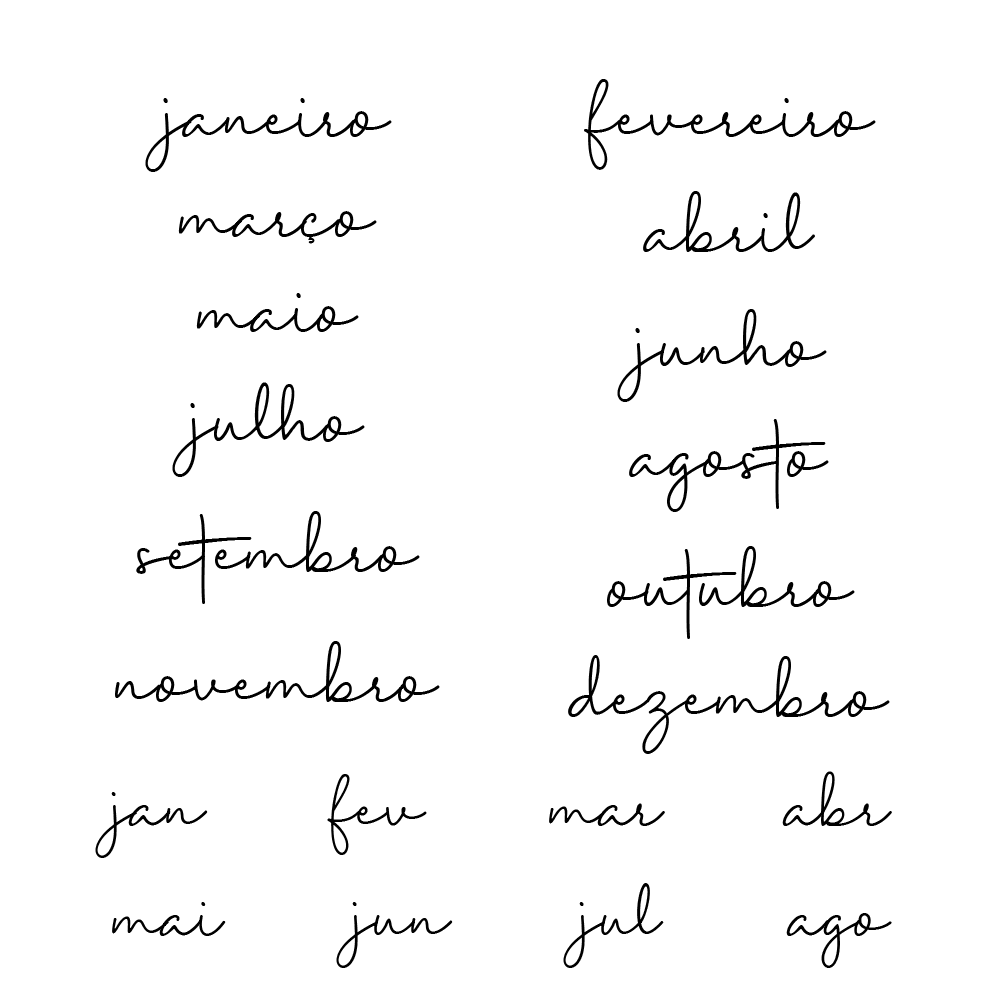 janeiro fevereiro
março abril
maio junho
julho agosto
setembro outubro
novembro dezembro
jan fev mar abr
mai jun jul ago